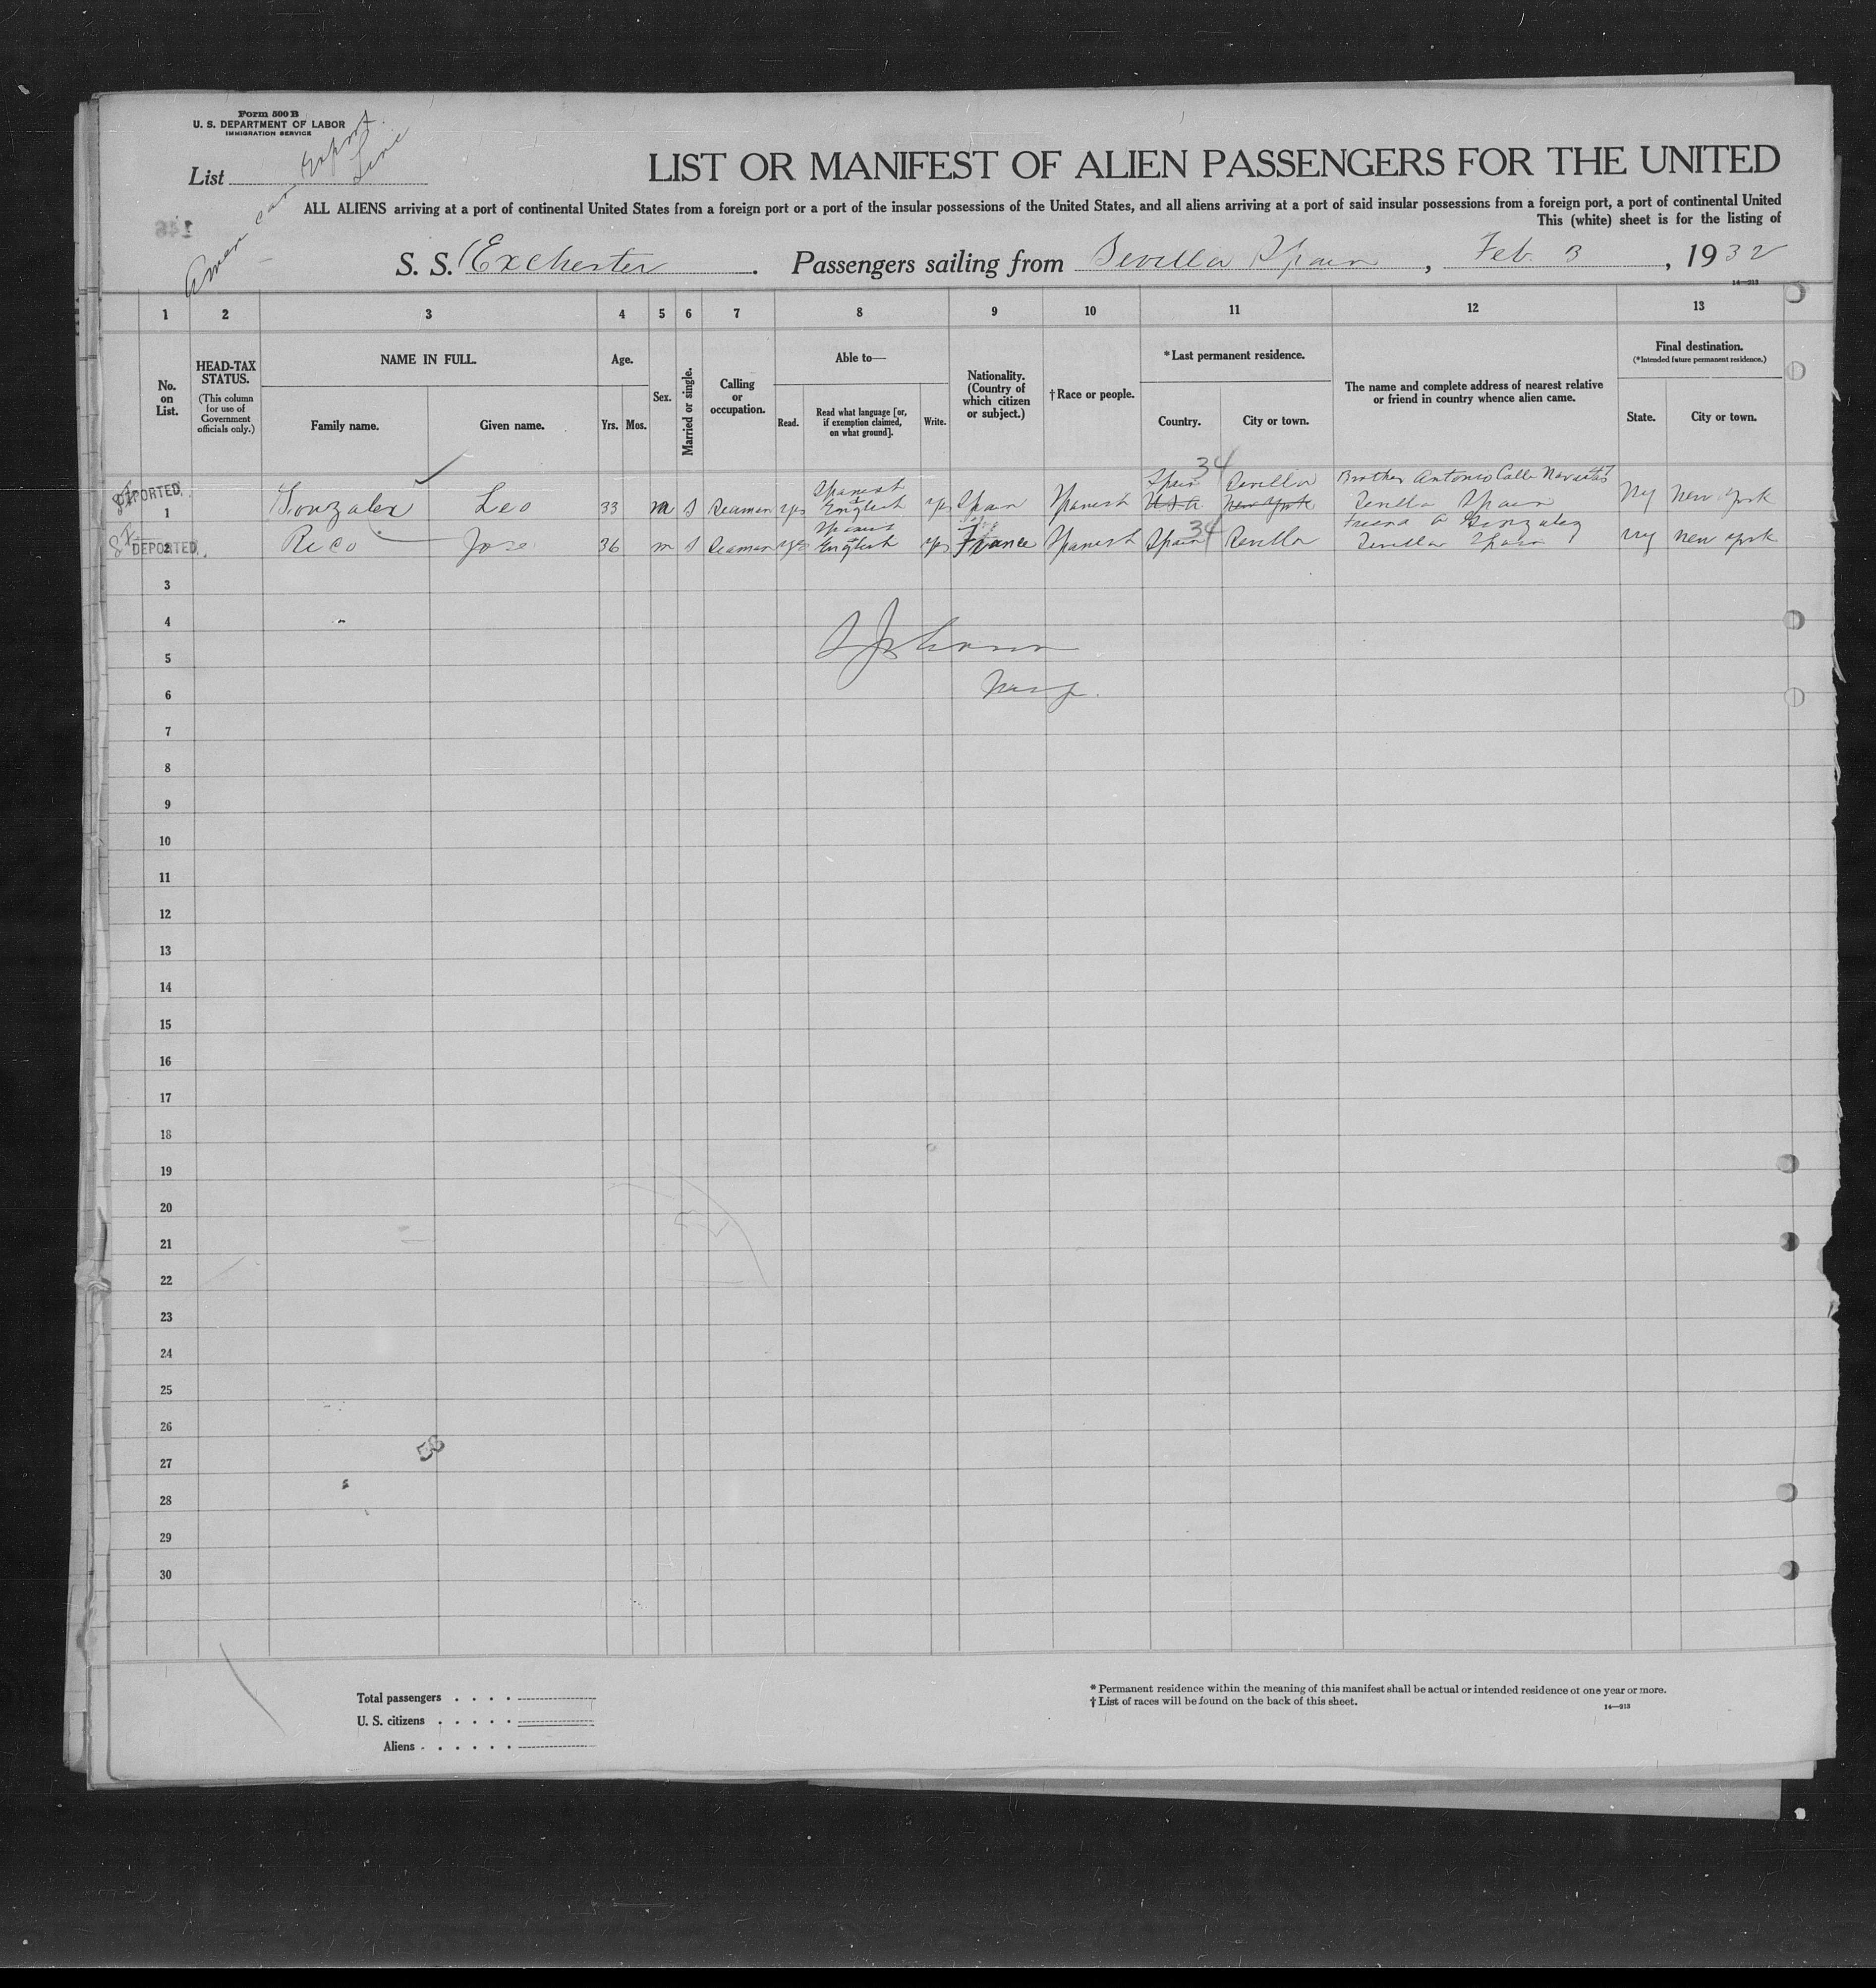 Form 500 B
U. S. DEPARTMENT OF LABOR
IMMIGRATION SERVICE
List
American Export
Line
LIST OR MANIFEST OF ALIEN PASSENGERS FOR THE UNITED
ALL ALIENS arriving at a port of continental United States from a foreign port or a port of the insular possessions of the United States, and all aliens arriving at a port of said insular possessions from a foreign port, a port of continental United
This (white) sheet is for the listing of
S. S. Exchester. Passengers sailing from Sevilla Spain, Feb. 3, 1932
14—213
1 2 3 4 5 6 7 8 9 10 11 12 13
No. on List.
HEAD-TAX STATUS.
(This column for use of Government officials only.)
NAME IN FULL.
Family name. Given name.
Age.
Yrs. Mos.
Sex.
Married or single.
Calling or occupation.
Able to—
Read. Read what language [or, if exemption claimed, on what ground]. Write.
Nationality. (Country of which citizen or subject.)
† Race or people.
* Last permanent residence.
Country. City or town.
The name and complete address of nearest relative or friend in country whence alien came.
Final destination.
(*Intended future permanent residence.)
State. City or town.
34
DEPORTED
Spanish Spain Sevilla Brother Antonio Calle
1 Gonzalez Leo 33 m S Seaman yes English yes Spain Spanish U S A New York Sevilla Spain NY New York
Spanish 34 Friend A Gonzalez
DEPORTED
2 Rico Jose 36 m S Seaman yes English yes France Spanish Spain Sevilla Sevilla Spain NY New York
3
4
5
6
7
8
9
10
11
12
13
14
15
16
17
18
19
20
21
22
23
24
25
26
27
28
29
30
Total passengers
U. S. citizens
Aliens
* Permanent residence within the meaning of this manifest shall be actual or intended residence of one year or more.
† List of races will be found on the back of this sheet.
14—213